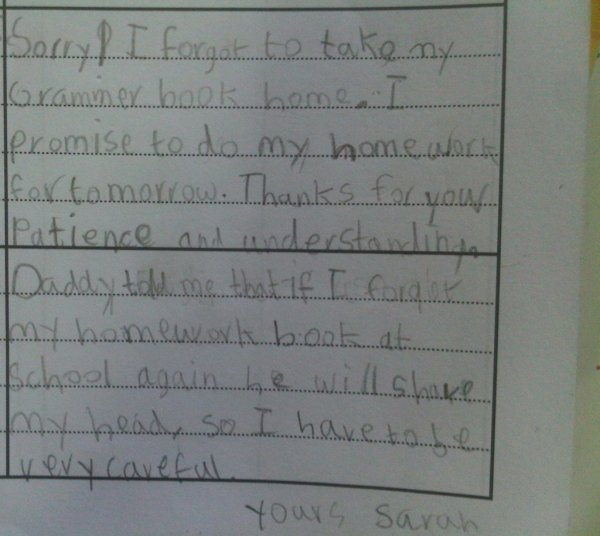 Sorry! I forgot to take my
Grammer book home. I
promise to do my homework
for tomorrow. Thanks for your
Patience and understanding
Daddy told me that if I forget
my homework book at
school again he will shave
my head, so I have to be
very careful.
Yours Sarah